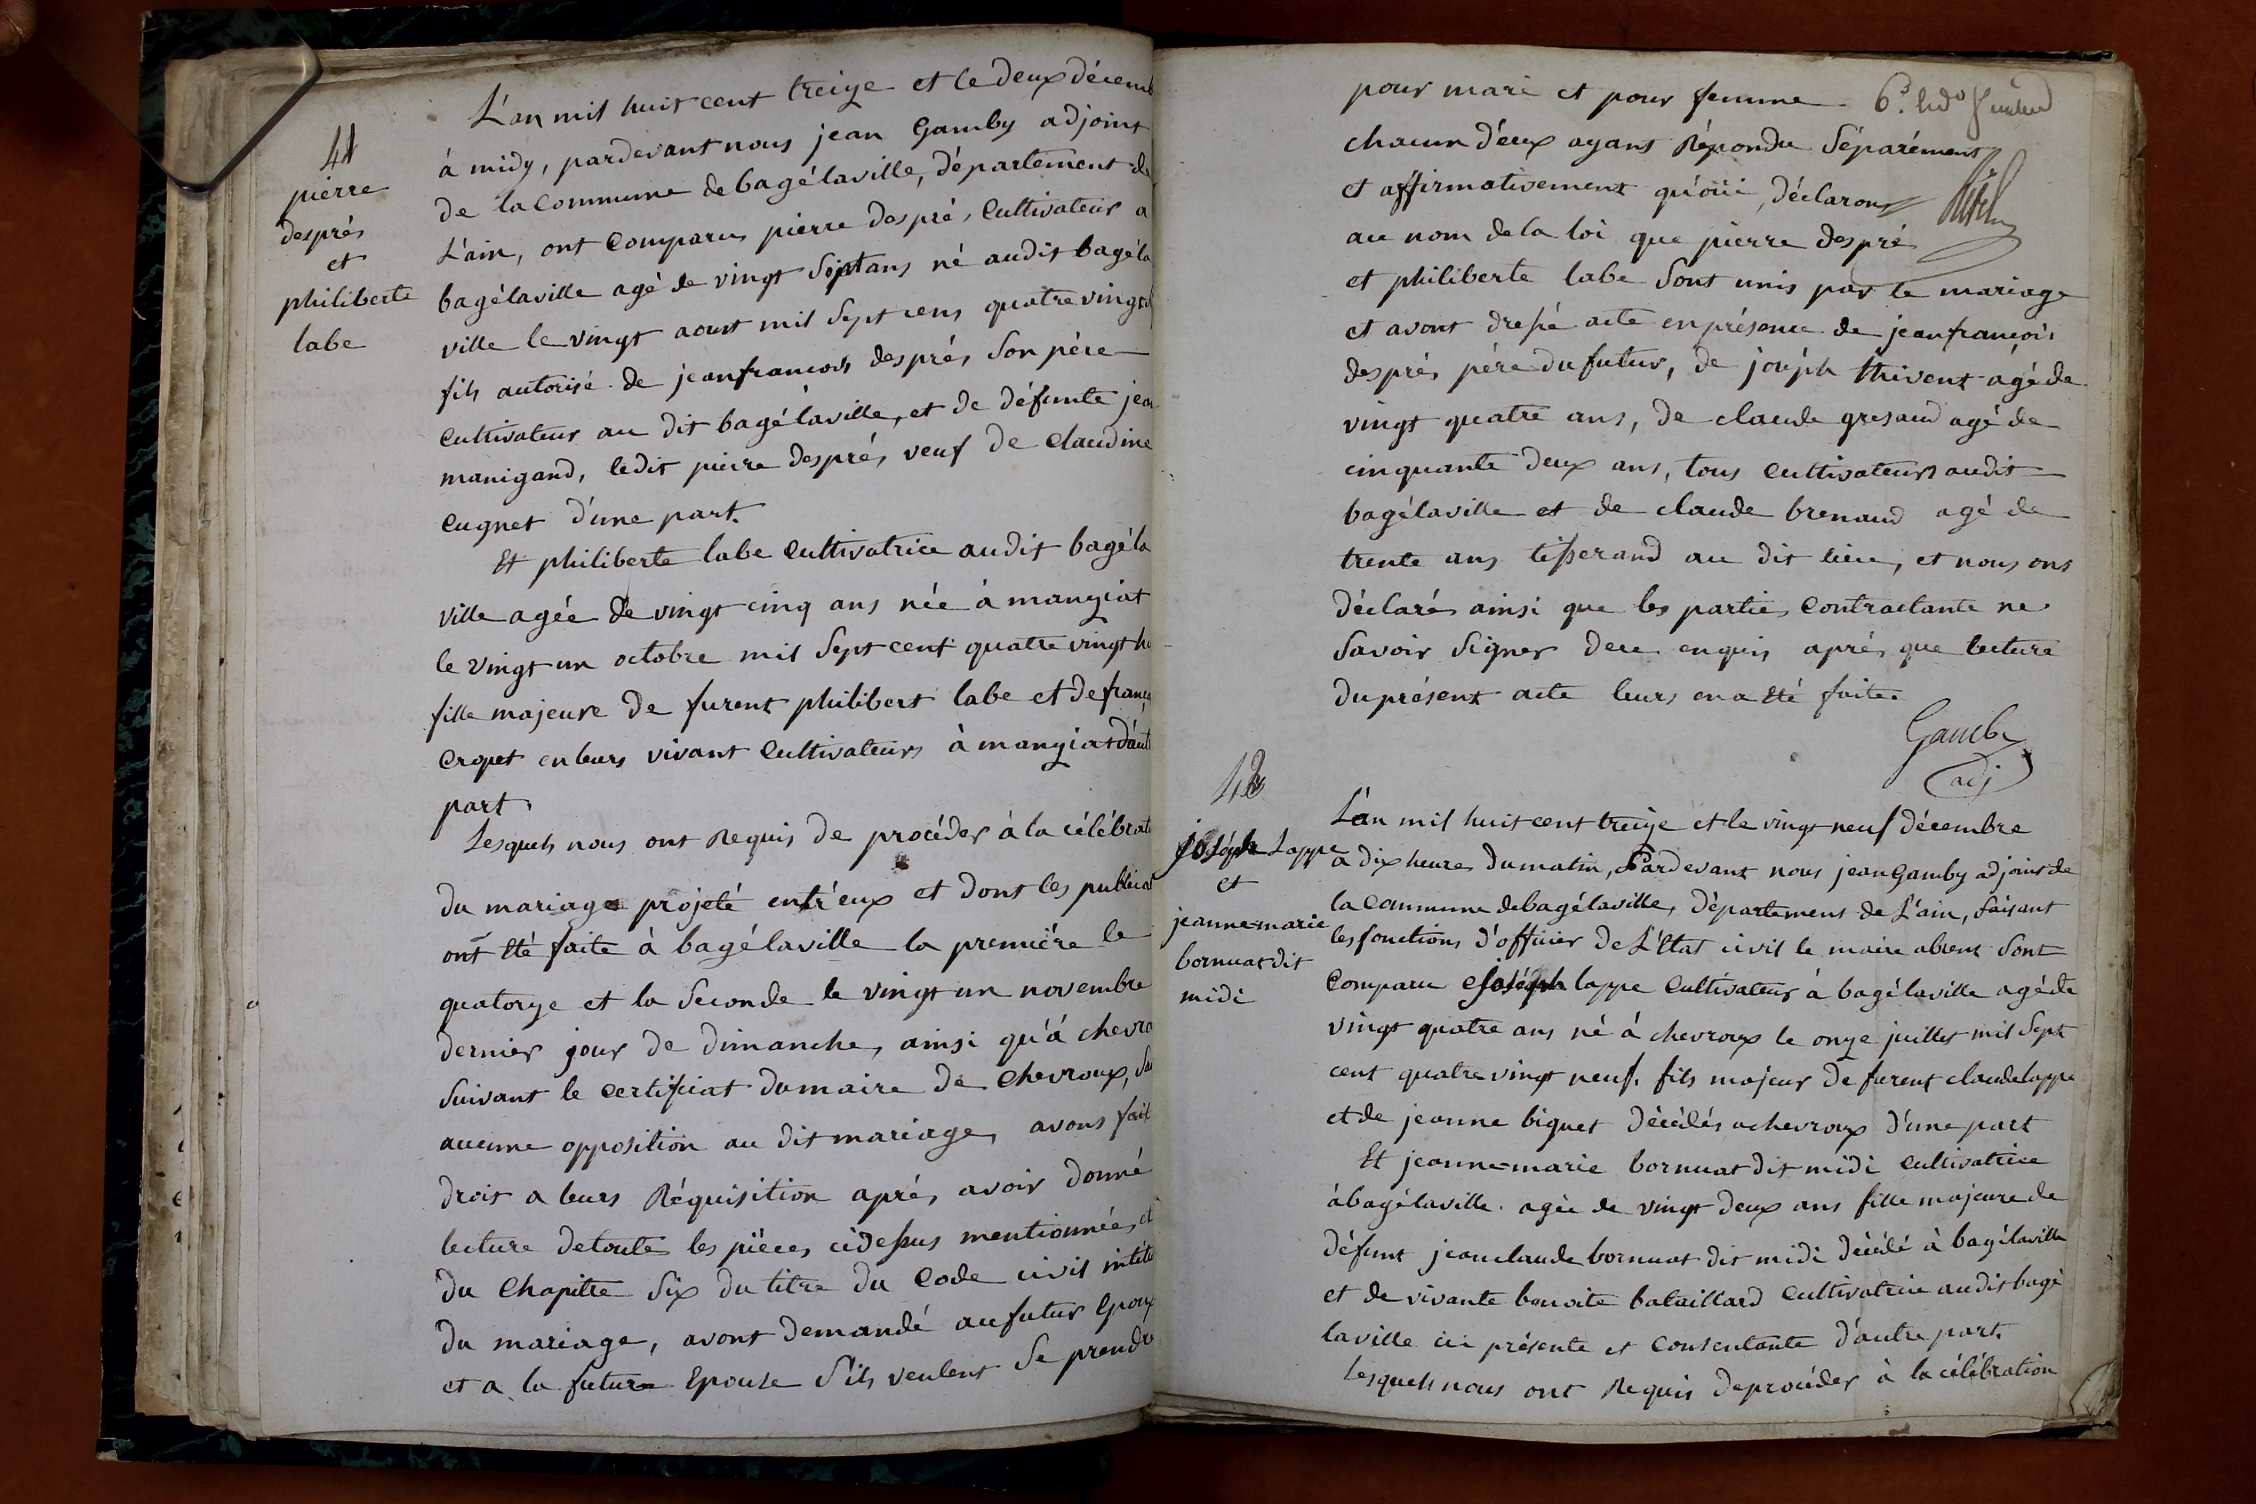 41
pierre
després
et
philiberte
labe
L'an mil huit cent treize et le deux décemb
à midy, pardevant nous jean Gamby adjoint
de la Commune de bagélaville, département de
L'ain, ont Comparus pierre despré, Cultivateur a
bagélaville agé de vingt Sept ans né audit bagéla
ville le vingt aoust mil Sept cens quatre vingt
fils autorisé de jeanfrancois després Son pére
Cultivateur au dit bagélaville, et de défunte jea
manigand, ledit pierre després veuf de Claudine
Cugnet d'une part.
Et philiberte labe Cultivatrice audit bagéla
ville agée de vingt cinq ans née à mangiat
le vingt un octobre mil Sept cent quatre vingt hu
fille majeure de furent philibert labe et de franç
Cropet en leurs vivant Cultivateurs à mangiat d'aut
part.
Lesquels nous ont Requis de procéder à la célébrat
du mariage projeté entr'eux et dont les publicat
ont été faite à bagélaville la premiére le
quatorze et la Seconde le vingt un novembre
dernier jour de dimanche, ainsi qu'à chevro
Suivant le certificat du maire de Chevroux,
aucune opposition au dit mariage, avons fait
droit a leurs Réquisition aprés avoir donné
lecture detoutes les piéces cidessus mentionnées, et
du Chapitre Six du titre du Code civil intitu
du mariage, avont demandé au futur Epoux
et a la future Epouse S'ils veulent Se prendre
pour mari et pour femme
chacun d'eux ayant Répondu Séparément
et affirmativement qu'oüi, déclarons
au nom de la loi que pierre despré
et philiberte labe Sont unis par le mariage
et avont dressé acte en présence de jeanfrançois
després pére du futur, de joséph thivent agé de
vingt quatre ans, de claude gresaud agé de
cinquante deux ans, tous Cultivateurs audit
bagélaville et de claude brenaud agé de
trente ans tisserand au dit lieu, et nous ons
déclarés ainsi que les parties Contractante ne
Savoir Signer dece enquis aprés que lecture
du présent acte leurs en a été faite.
Gamby
adj
42
joséph Lappe
et
jeanne=marie
bornuat dit
midi
L'an mil huit cent treize et le vingt neuf décembre
a dix heures du matin, Pardevant nous jean Gamby adjoint de
la Commune debagélaville, département de L'ain, faisant
les fonctions d'officier de L'Etat civil le maire absent Sont
Comparu joséph lappe Cultivateur à bagélaville agé de
vingt quatre ans né à chevroux le onze juillet mil Sept
cent quatre vingt neuf. fils majeur de furent claude lappe
et de jeanne biguet décédés a chevroux d'une part
Et jeanne=marie bornuat dit midi Cultivatrice
à bagélaville. agée de vingt deux ans fille majeure de
défunt jean claude bornuat dit midi décédé à bagélaville
et de vivante benoite bataillard Cultivatrice audit bagé
laville ici présente et Consentante d'autre part.
Lesquels nous ont Requis de procéder à la célébration